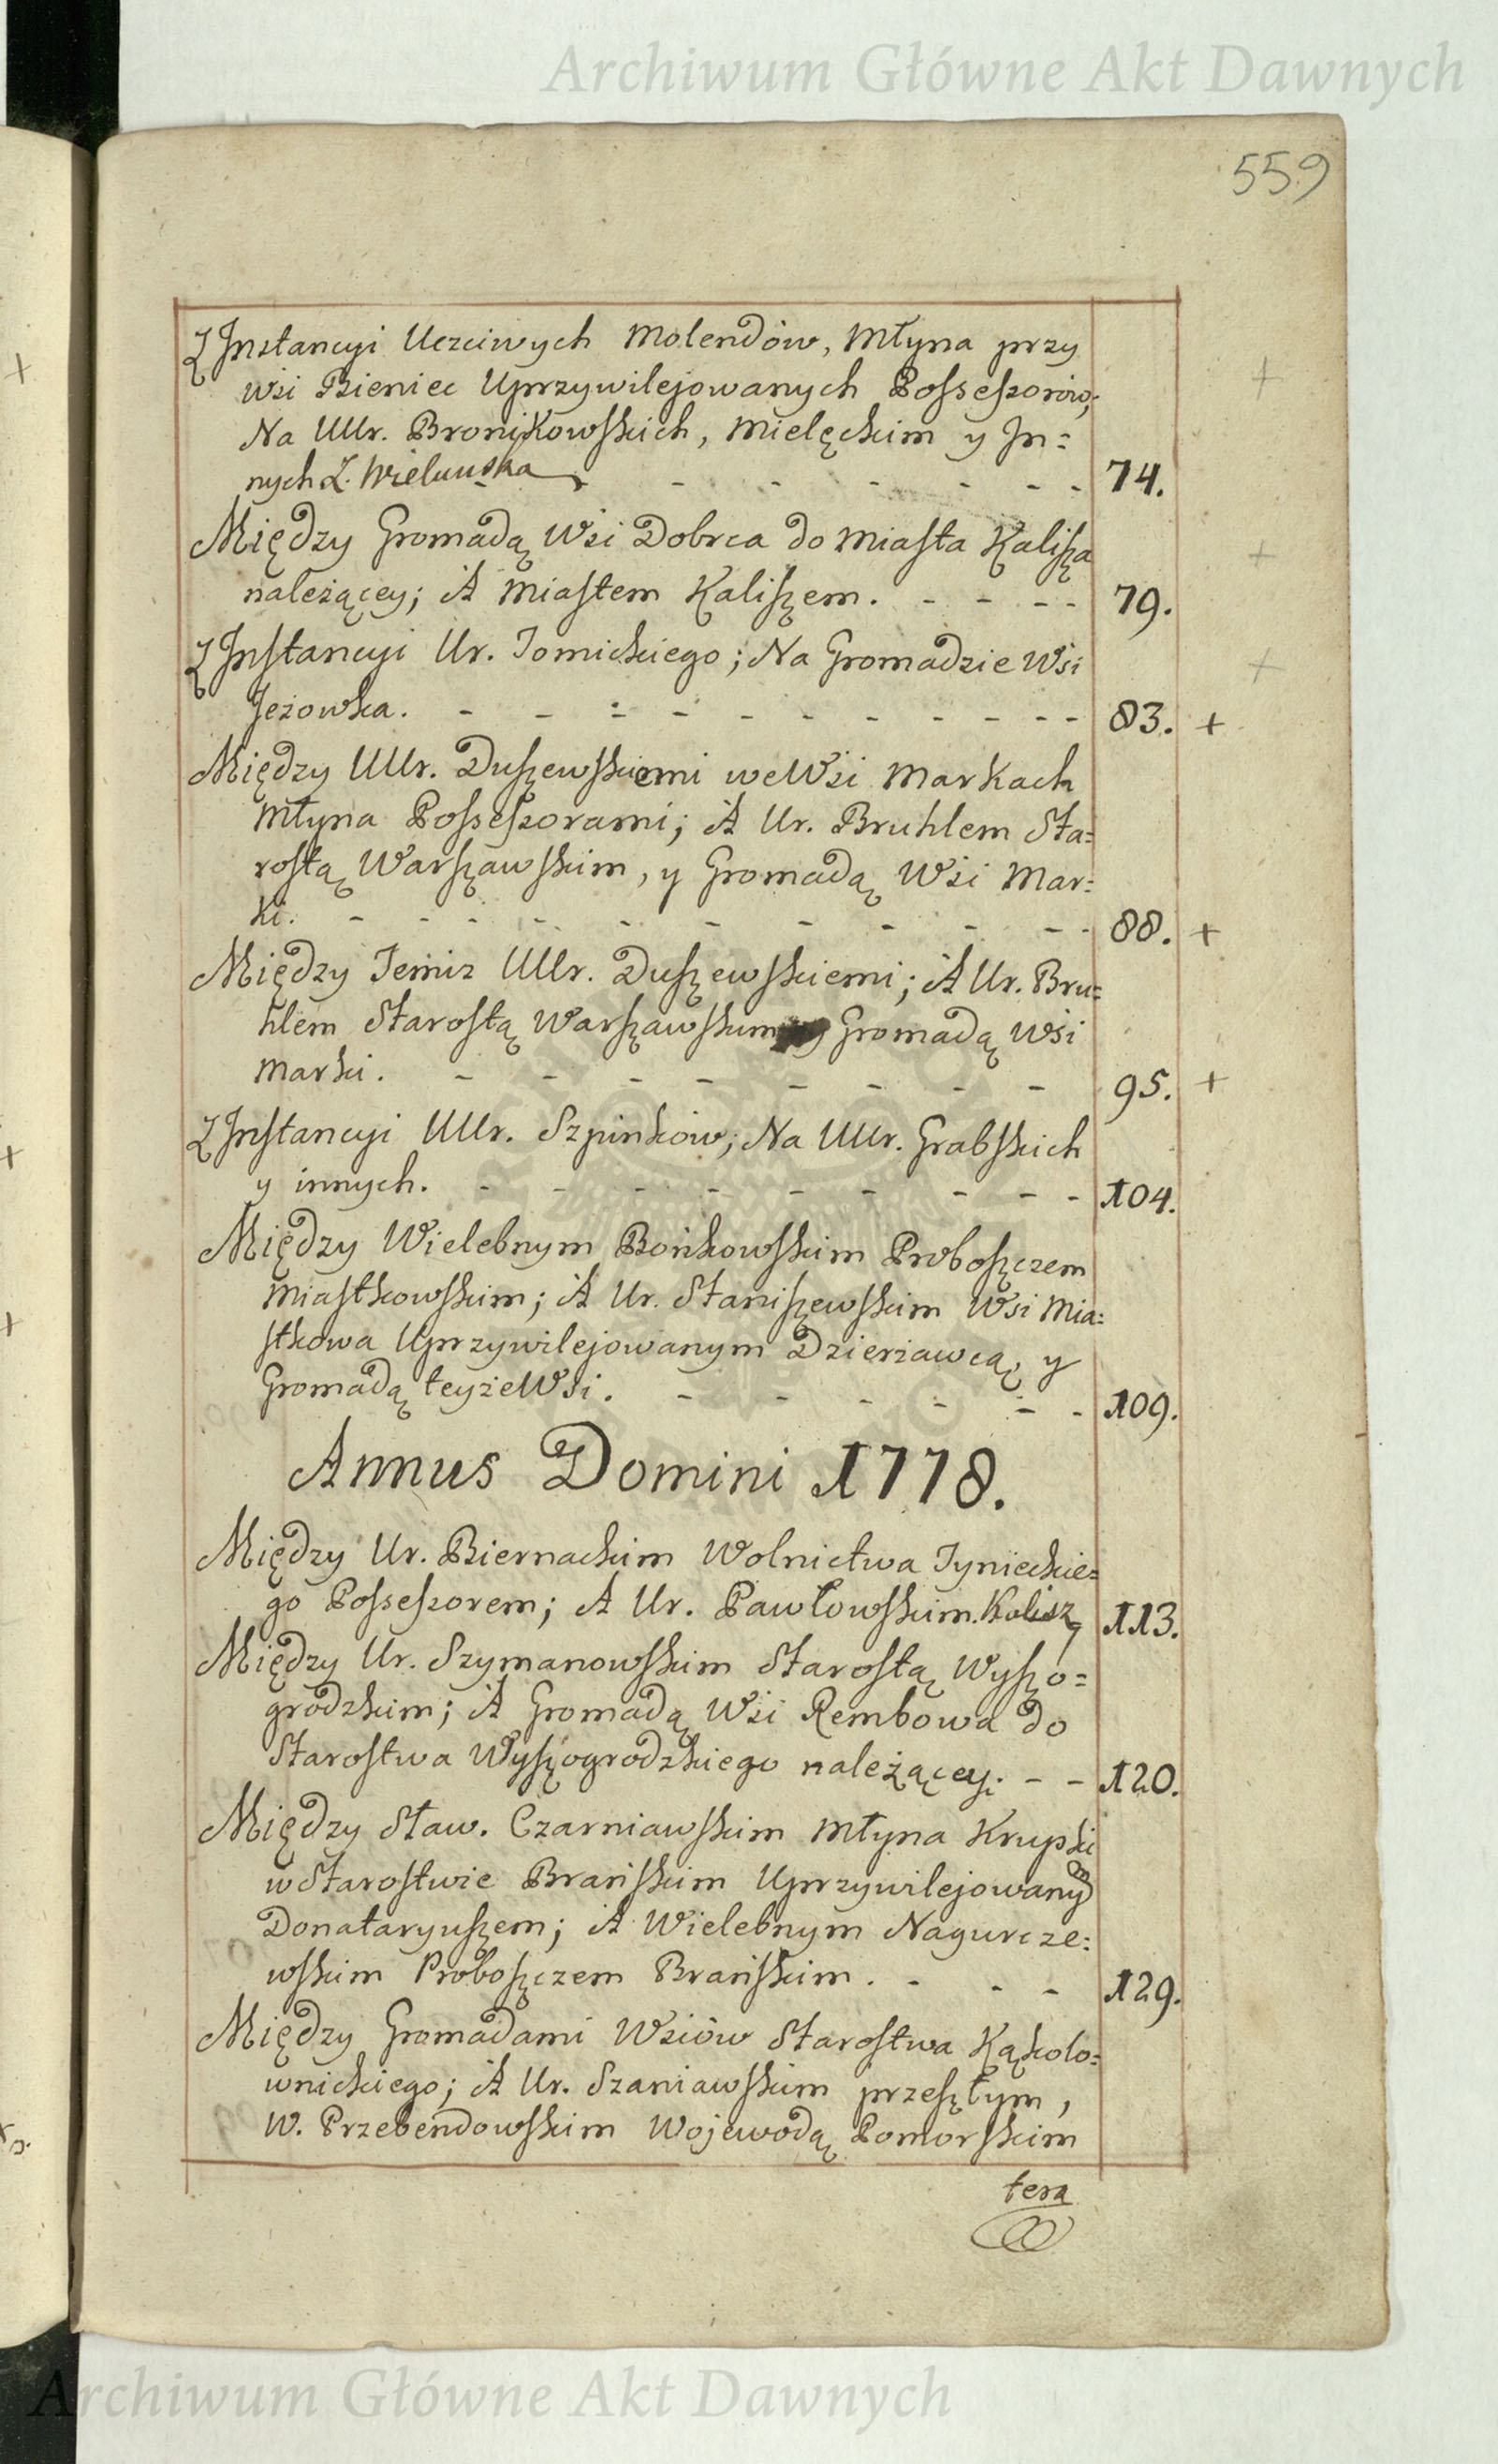 Archiwum Główne Akt Dawnych
559
Z Instancyi Uczciwych Molendów, Młyna przy
wsi Bieniec Uprzywilejowanych Possessorów,
Na UUr. Bronikowskich, Mielęckim y In=
nych Z. Wieluńska - - - - - - 74.
Między Gromadą Wsi Dobrca do Miasta Kalisza
należącey; A Miastem Kaliszem. - - - - 79.
Z Instancyi Ur. Tomickiego; Na Gromadzie Wsi
Jeżowka. - - - - - - - - - - - 83. +
Między UUr. Duszewskiemi we Wsi Markach
Młyna Possessorami; A Ur. Bruhlem Sta=
rostą Warszawskim, y Gromadą Wsi Mar=
ki. - - - - - - - - - - 88. +
Między Temiz UUr. Duszewskiemi; A Ur. Bru=
hlem Starostą Warszawskim y Gromadą Wsi
Marki. - - - - - - - - 95. +
Z Instancyi UUr. Szpinków; Na UUr. Grabskich
y innych. - - - - - - - - - 104.
Między Wielebnym Bońkowskim Proboszczem
Miastkowskim; A Ur. Staniszewskim Wsi Mia=
stkowa Uprzywilejowanym Dzierżawcą, y
Gromadą teyże Wsi. - - - - - - 109.
Annus Domini 1778.
Między Ur. Biernackim Wolnictwa Tynieckie=
go Possessorem; A Ur. Pawłowskim. Kalisz 113.
Między Ur. Szymanowskim Starostą Wyszo=
grodzkim; A Gromadą Wsi Rembowa do
Starostwa Wyszogrodzkiego należącey. - - 120.
Między Sław. Czarniawskim Młyna Krupski
w Starostwie Brańskim Uprzywilejowanym
Donataryuszem; A Wielebnym Nagurcze=
wskim Proboszczem Brańskim. - - - 129.
Między Gromadami Wsiów Starostwa Kąkolo=
wnickiego; A Ur. Szaniawskim przeszłym,
W. Przebendowskim Wojewodą Pomorskim
tera
Archiwum Główne Akt Dawnych